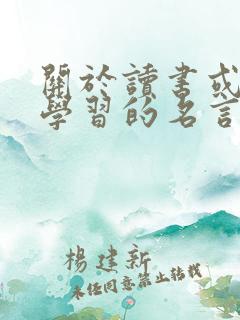 關於讀書或
學習的名言
楊建新
未任同意禁止轉載